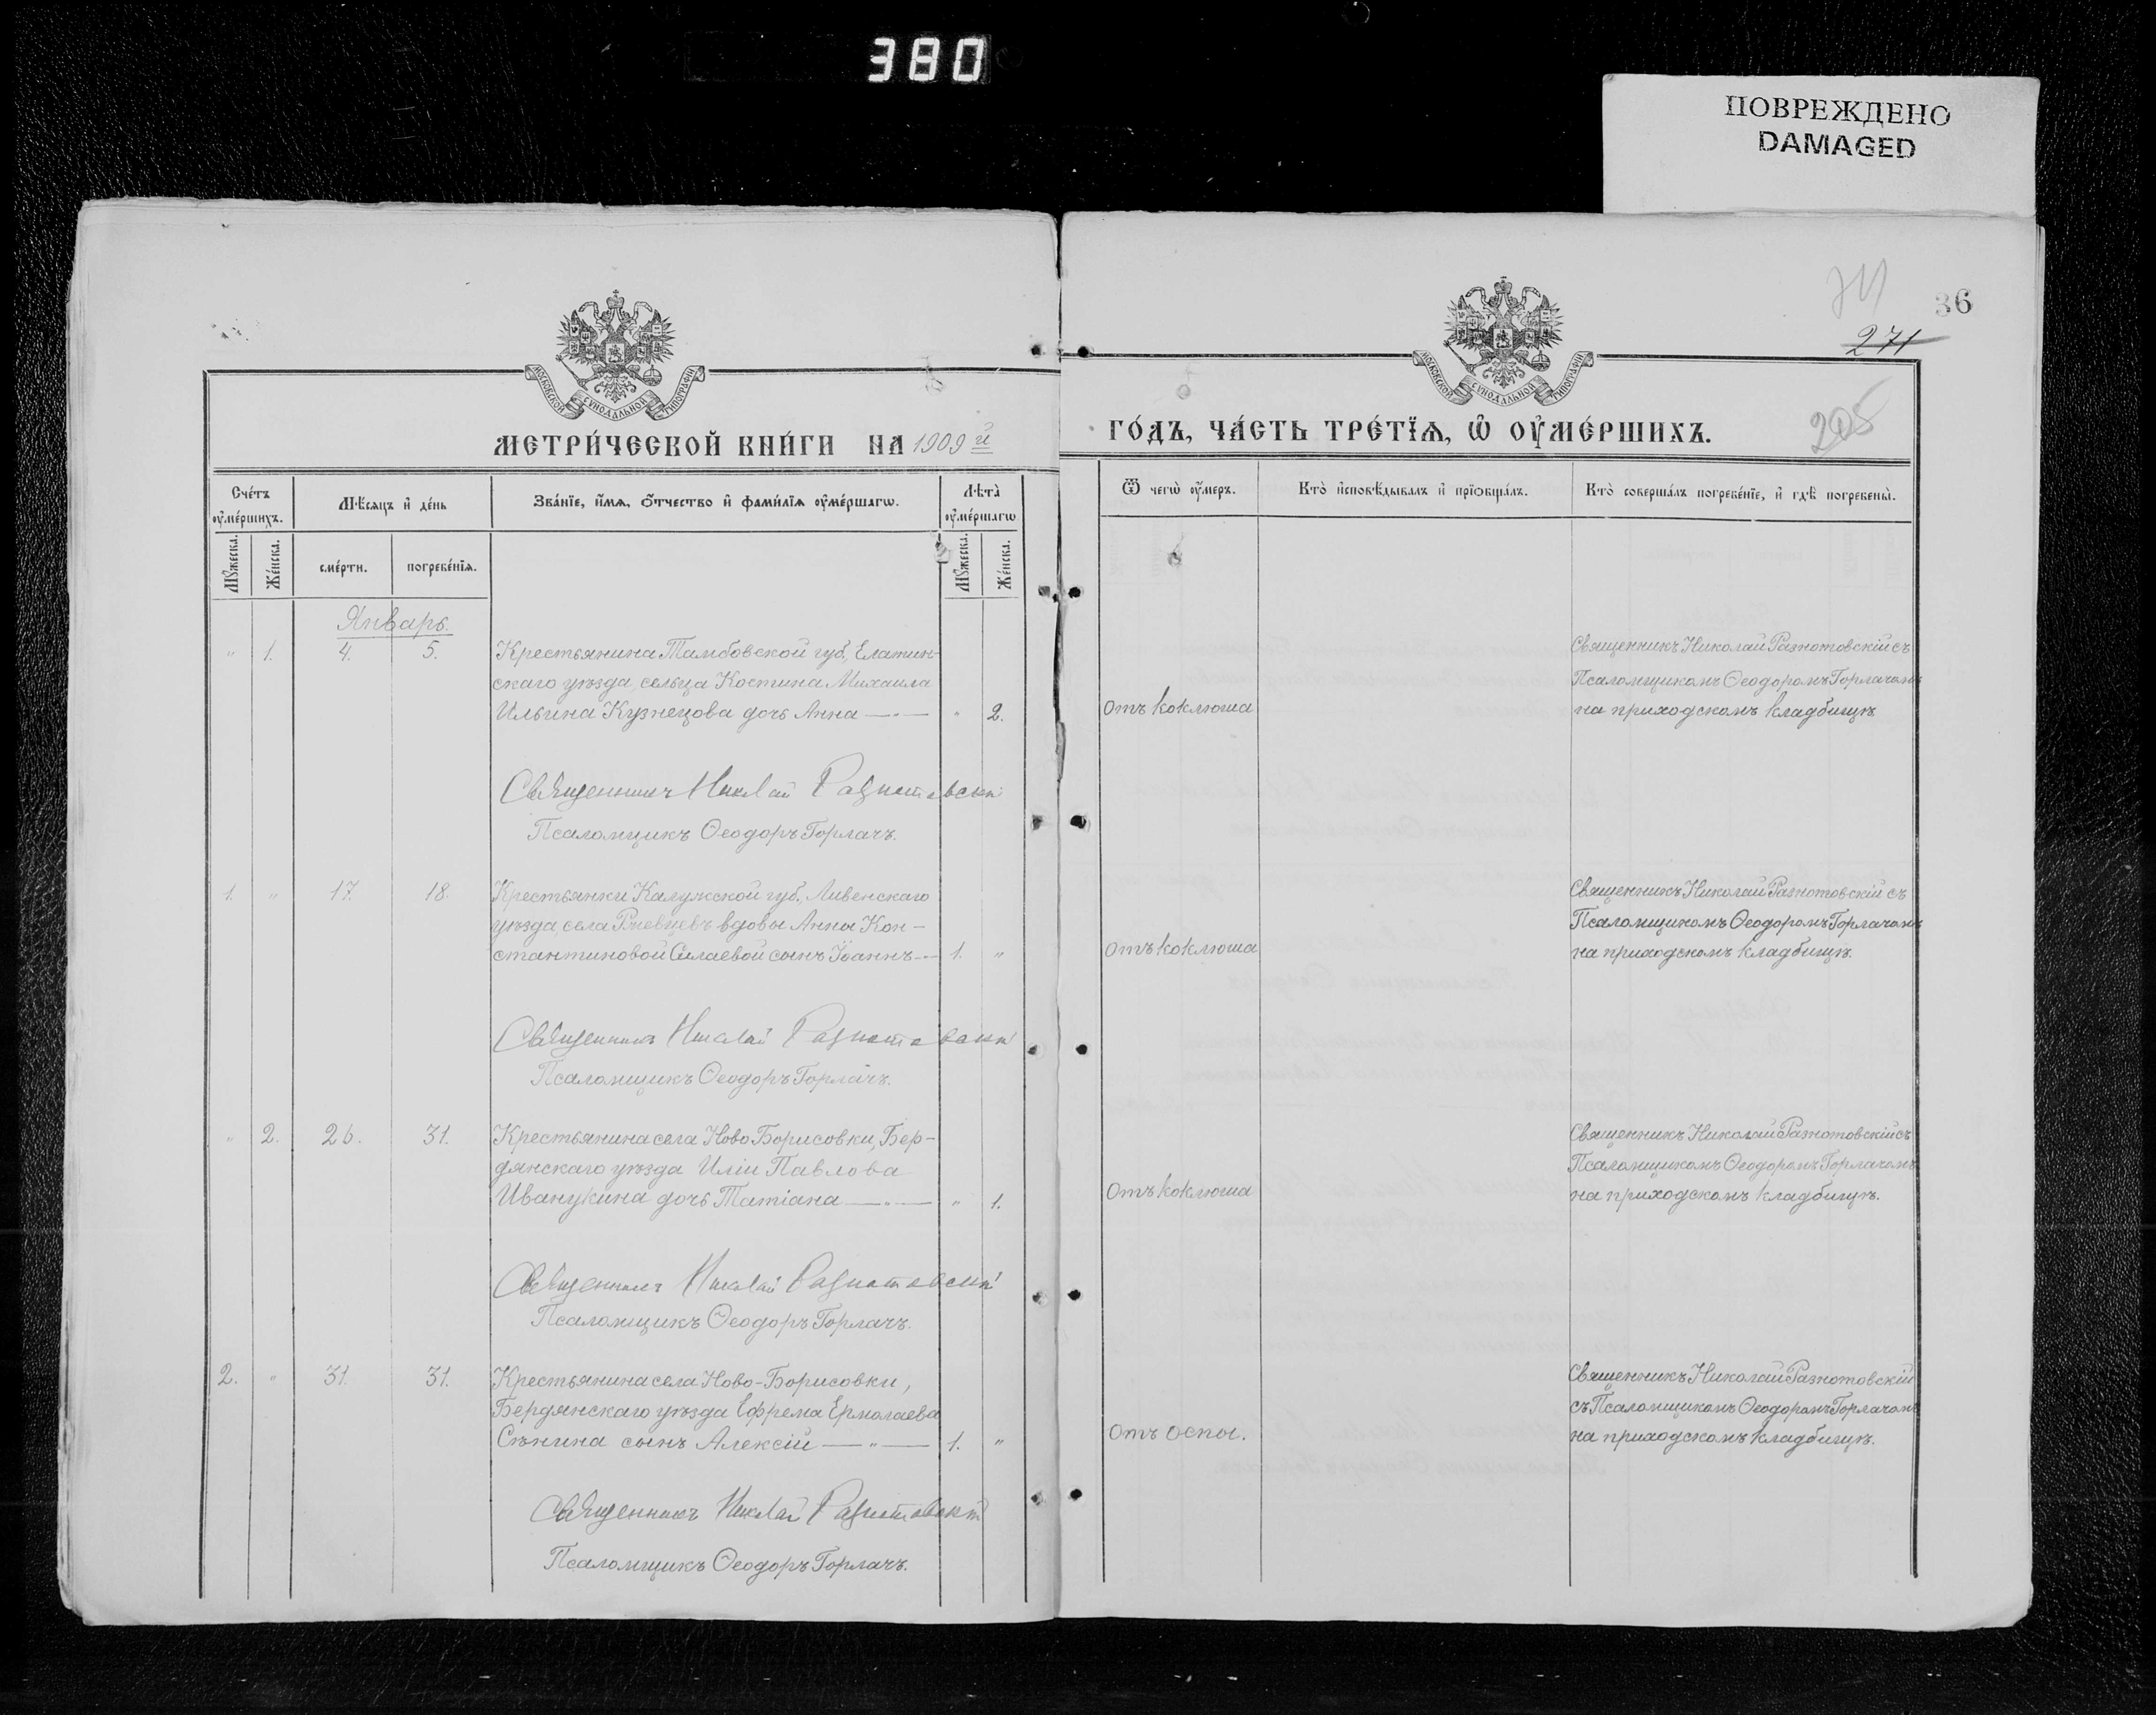 380
ПОВРЕЖДЕНО
DAMAGED
36
271
205
МОСКОВСКОЙ СУНОДАЛЬНОЙ ТИПОГРАФІИ
МОСКОВСКОЙ СУНОДАЛЬНОЙ ТИПОГРАФІИ
МЕТРИ́ЧЕСКОЙ КНИ́ГИ НА 1909 й
ГО́ДЪ, ЧА́СТЬ ТРЕ́ТЇѦ, Ѡ ОУ҆МЕ́РШИХЪ.
Сче́тъ оу҆ме́ршихъ.
Мꙋ́жеска.
Же́нска.
Мѣ́сѧцъ и҆ де́нь
сме́рти.
погребе́нїѧ.
Зва́нїе, и҆́мѧ, о҆́тчество и҆ фами́лїѧ оу҆ме́ршагѡ.
Лѣта̀ оу҆ме́ршагѡ
Мꙋ́жеска.
Же́нска.
Ѿ чегѡ̀ оу҆́меръ.
Кто̀ и҆сповѣ́дывалъ и҆ прїѡбща́лъ.
Кто̀ соверша́лъ погребе́нїе, и҆ гдѣ̀ погребены̀.
Январь.
" 1. 4. 5. Крестьянина Тамбовской губ., Елатин-
скаго уѣзда, сельца Костина Михаила
Ильина Кузнецова дочь Анна — " — " 2.
Отъ коклюша
Священникъ Николай Разнотовскій съ
Псаломщикомъ Ѳеодоромъ Горлачомъ
на приходскомъ кладбищѣ.
Священникъ Николай Разнотовскій
Псаломщикъ Ѳеодоръ Горлачъ.
1. " 17. 18. Крестьянки Калужской губ., Ливенскаго
уѣзда села вдовы Анны Кон-
стантиновой Силаевой сынъ Іоаннъ — 1. "
Отъ коклюша
Священникъ Николай Разнотовскій съ
Псаломщикомъ Ѳеодоромъ Горлачомъ
на приходскомъ кладбищѣ.
Священникъ Николай Разнотовскій
Псаломщикъ Ѳеодоръ Горлачъ.
" 2. 26. 31. Крестьянина села Ново Борисовки, Бер-
дянскаго уѣзда Иліи Павлова
Иванукина дочь Татіана — " — " 1.
Отъ коклюша
Священникъ Николай Разнотовскій съ
Псаломщикомъ Ѳеодоромъ Горлачомъ
на приходскомъ кладбищѣ.
Священникъ Николай Разнотовскій
Псаломщикъ Ѳеодоръ Горлачъ.
2. " 31. 31. Крестьянина села Ново-Борисовки,
Бердянскаго уѣзда Ефрема Ермолаева
Сѣнина сынъ Алексій — " — 1. "
Отъ оспы.
Священникъ Николай Разнотовскій
съ Псаломщикомъ Ѳеодоромъ Горлачомъ
на приходскомъ кладбищѣ.
Священникъ Николай Разнотовскій
Псаломщикъ Ѳеодоръ Горлачъ.